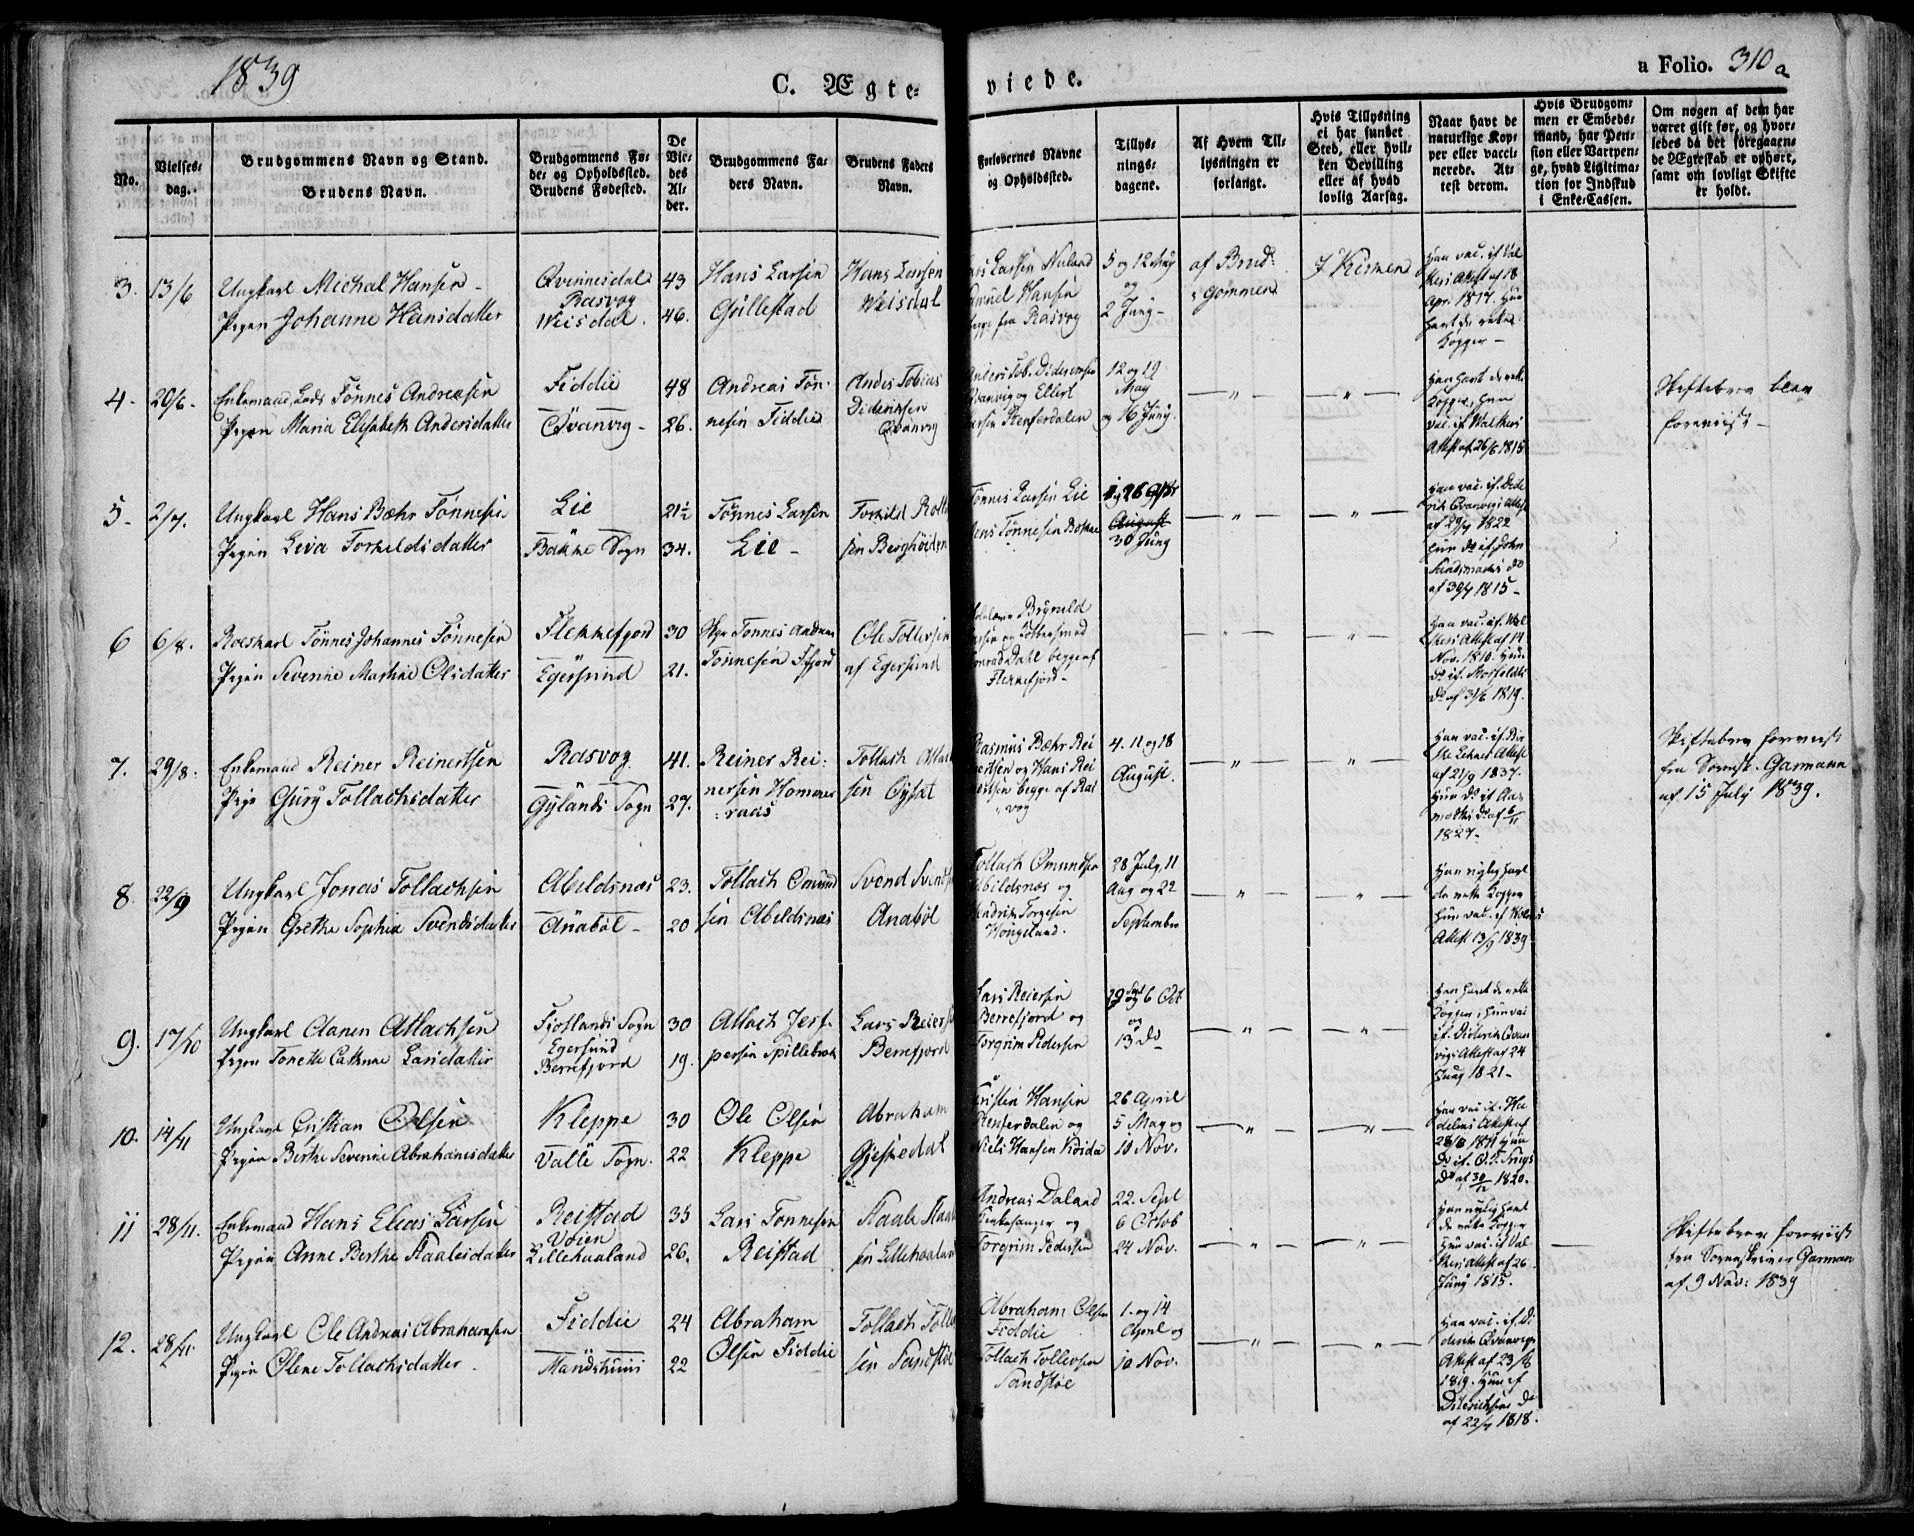 1839
C. Ægte-
viede.
a Folio. 310 a
No.
Vielses-
dag.
Brudgommens Navn og Stand.
Brudens Navn.
Brudgommens Fø-
de- og Opholdssted.
Brudens Fødested.
De
Vie-
des
Al-
der.
Brudgommens Fa-
ders Navn.
Brudens Faders
Navn.
Forlovernes Navne
og Opholdssted.
Tillys-
nings-
dagene.
Af Hvem Til-
lysningen er
forlangt.
Hvis Tillysning
ei har fundet
Sted, eller hvil-
ken Bevilling
eller af hvad
lovlig Aarsag.
Naar havt de
naturlige Kop-
per eller vacci-
nerede. At-
test derom.
Hvis Brudgom-
men er Embeds-
mand, har Pen-
sion eller Vartpen-
ge, hvad Ligitima-
tion for Indskud
i Enke-Cassen.
Om nogen af dem har
været gift før, og hvor-
ledes da det foregaaen-
de Ægteskab er ophørt,
samt om lovligt Skifte
er holdt.
3. 13/6
Ungkarl Michal Hansen
Pigen Johanne Hansdatter
Qvinnesdal
Rasvog
Weisdal
43
46.
Hans Larsen
Gullestad
Hans Larsen
Weisdal
Larsen Nuland
Hansen
fra Rasvog
5 og 12 May
og
2 Juny
af Brud-
gommen
I Kirken
Han vac. if. Wal
kers Attest af 18
Apr. 1817. Hun
havt de rette
Kopper
4. 20/6
Enkemand Tønnes Andreasen
Pigen Maria Elisabeth Andersdatter
Fiddie
Qvanvig
48
26.
Andreas Tøn-
nesen Fiddie
Anders Tobias
Didericksen
Qvanvig
Anders Tob. Didericksen
Qvanvig og Ellert
Stensferdalen
12 og 19
May
og 16 Juny.
— " —
— " —
Han havt de rette
Kopper, Hun
vac. if. Walkers
Attest af 26/6 1815
Skiftebrev blev
foreviist
5. 2/7.
Ungkarl Hans Bæhr Tønnesen
Pigen Lisa Torkeldsdatter
Lie
Bakke Sogn
21½
34.
Tønnes Larsen
Lie
Torkild
sen Berghøiden
Tønnes Larsen Lie
Jens Tønnesen
August
30 Juny
— " —
— " —
Han vac. if. Dide
rik Qvanvigs Attest
af 29/7 1822
Hun do if. John
Sandsmarks do
af 30/7 1815
6 6/8.
Tønnes Johannes Tønnesen
Pigen Severine Martine Olsdatter
Flekkefjord
Egersund
30
21.
Tønnes Andreas
Tønnesen
Ole Tollefsen
af Egersund
Brynild
Conrad Dahl begge af
Flekkefjord
Han vac. if. Wal
kers Attest af 14
Nov. 1810. Hun
do if.
do af 31/6 1819.
7. 29/8.
Enkemand Reiner Reinertsen
Pige Gury Tollachsdatter
Rasvog
Gylands Sogn
41.
27.
Reiner Rei-
nersen Hommer
raas
Tollach Atlak
sen
Rasmus Bæhr Rei
nertsen og Hans Rei
nertsen begge af Ras
vog
4. 11 og 18
August.
— " —
— " —
Han vac. if. Dir
Lehns Attest
af 21/9 1837.
Hun do if. Aa
moths do af 6/11
1827
Skiftebrev foreviist
fra Sorensk. Garmann
af 15 July 1839.
8. 22/9
Ungkarl Jonas Tollachsen
Pigen Grethe Sophia Svendsdatter
Abildsnæs
Anabøl
23.
20
Tollach Omund
sen Abildsnæs
Svend Svends
Anabøl
Tollach Omundsen
Abildsnæs og
Hendrik Torgesen
Hongeland.
28 July, 11
Aug og 22
September
— " —
— " —
Han rigtig havt
de rette Kopper
Hun vac. if.
Attest 13/9 1839
9. 17/10
Ungkarl Aanen Atlachsen
Pigen Tonette Cathrine Larsdatter
Fjotlands Sogn
Egersund
Berrefjord
30
19.
Atlach Jesp-
persen Spillebrok
Lars Reiers
Berrefjord
Lars Reiersen
Berrefjord og
Torgrim Pedersen
29 Sept og 6 Oct
og
13 do
— " —
— " —
Han havt de rette
Kopper, Hun vac
if. Diderik Qvan
vigs Attest af 24
Juny 1821
10. 14/11
Ungkarl Cristian Olsen
Pigen Berthe Severine Abrahamsdatter
Kleppe
Valle Sogn.
30
22
Ole Olsen
Kleppe
Abraham
Gjeskedal
Cristen Hansen
Stensferdalen og
Niels Hansen
26 April
5 May og
10 Nov.
— " —
— " —
Han vac if.
Attest af
1811 Hun
do if.
do af 30/12 1820.
11 28/11.
Enkemand Hans Elias Larsen
Pigen Anne Berthe Staalesdatter
Reistad
Voien
Lillehaaland
35
26.
Lars Tønnesen
Reistad
Staale Staale
sen Lillehaaland
Andreas Daland
Kirkesanger og
Torgrim Pedersen
22. Sept
6 Octob
24 Nov.
— " —
— " —
Han rigtig havt
de rette Kopper
Hun vac. if. Wal
kers Attest af 26
Juny 1815.
Skiftebrev foreviist
fra Sorenskriver Garman
af 9 Nov: 1839
12. 28/11.
Ungkarl Ole Andreas Abrahamsen
Pigen Olene Tollachsdatter
Fiddie
24
22
Abraham
Olsen Fiddie
Tollach Tollev
sen Sandstøe
Abraham Olsen
Fiddie
Tollach Tollevsen
Sandstøe
1. og 14
April og
10 Nov.
— " —
— " —
Han vac. if. Di
derik Qvanvigs
Attest af 23/8
1819. Hun af
Didericksens do
af 22/7 1818.